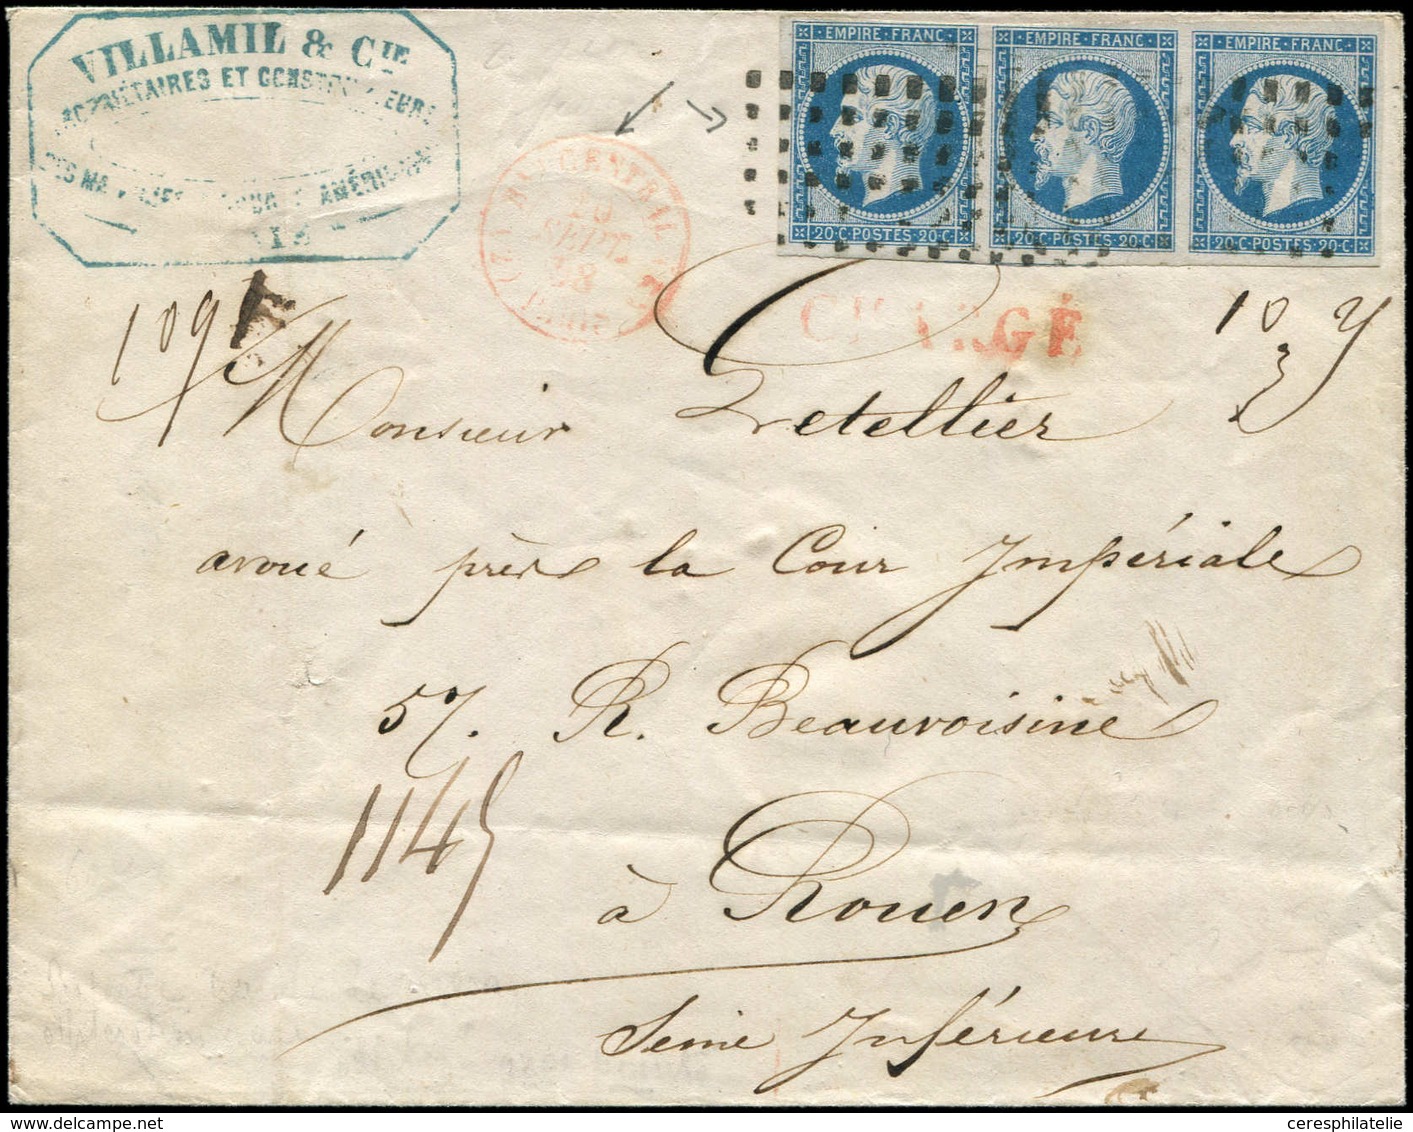 VILLAMIL & CIE
PROPRIÉTAIRES ET CONSTRUCTEURS
EMPIRE FRANC
EMPIRE FRANC
EMPIRE FRANC
20·C·POSTES·20·C
20·C·POSTES·20·C
20·C·POSTES·20·C
CENTRAL
SEPT.
58
CHARGÉ
109
10
Monsieur Letellier
avoué près la Cour Impériale
57. R. Beauvoisine
1145
à Rouen
Seine Inférieure
ceresphilatelie